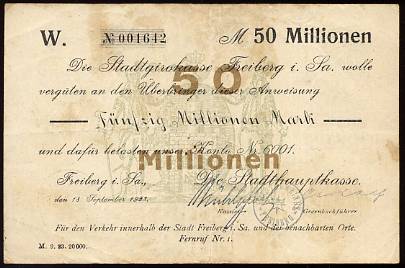 W. № 001642 M 50 Millionen
Die Stadtgirokasse Freiberg i. Sa. wolle
vergüten an den Überbringer dieser Anweisung
50
Fünfzig Millionen Mark
und dafür belasten unser Konto Nr. 6001.
Millionen
Freiberg i. Sa., Die Stadthauptkasse.
den 13. September 1923.
Kassier Gegenbuchführer
Für den Verkehr innerhalb der Stadt Freiberg i. Sa. und der benachbarten Orte.
Fernruf Nr. 1.
M. 9. 23. 20000.